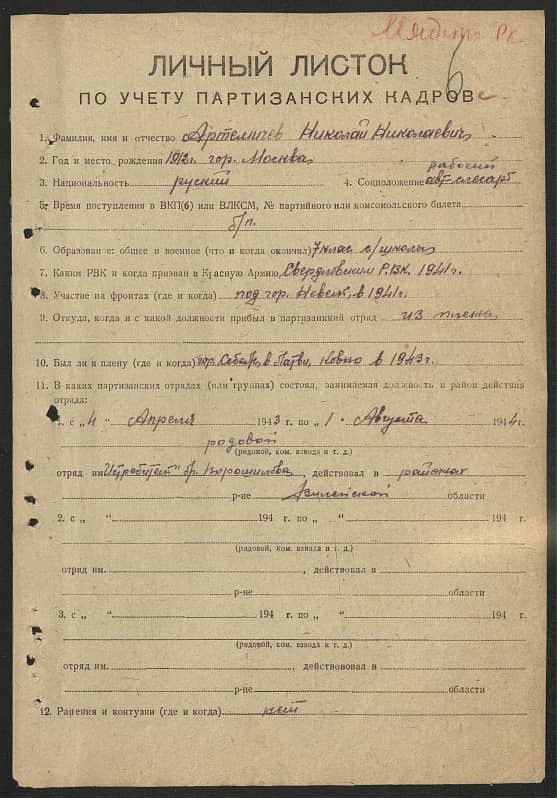 Мядель Рк
ЛИЧНЫЙ ЛИСТОК
ПО УЧЕТУ ПАРТИЗАНСКИХ КАДРОВ
1. Фамилия, имя и отчество Артемичев Николай Николаевич
2. Год и место рождения 1912г. гор. Москва
рабочий
3. Национальность руский 4. Соцположение авт-слесарь
5. Время поступления в ВКП(б) или ВЛКСМ, № партийного или комсомольского билета
б/п.
6. Образование: общее и военное (что и когда окончил) 7 клас с/школы
7. Каким РВК и когда призван в Красную Армию Свердловским Р.В.К. 1941г.
8. Участие на фронтах (где и когда) под гор. Невель, в 1941г.
9. Откуда, когда и с какой должности прибыл в партизанкий отряд из плена
10. Был ли в плену (где и когда) гор. Себеж, в Латви, Ковно в 1943г.
11. В каких партизанских отрядах (или группах) состоял, занимаемая должность и район действия
отряда:
1. с „4 “ Апреля 1943 г. по „1 “ Августа 1944 г.
родовой
(рядовой, ком. взвода и т. д.)
отряд им. Истребитель" бр. Ворошилова, действовал в районах
р-не Вилейской области
2. с „ “ 194 г. по „ “ 194 г.
(рядовой, ком. взвода и т. д.)
отряд им. , действовал в
р-не области
3. с „ “ 194 г. по „ “ 194 г.
(рядовой, ком. взвода и т. д.)
отряд им. , действововал в
р-не области
12. Ранения и контузии (где и когда) нет